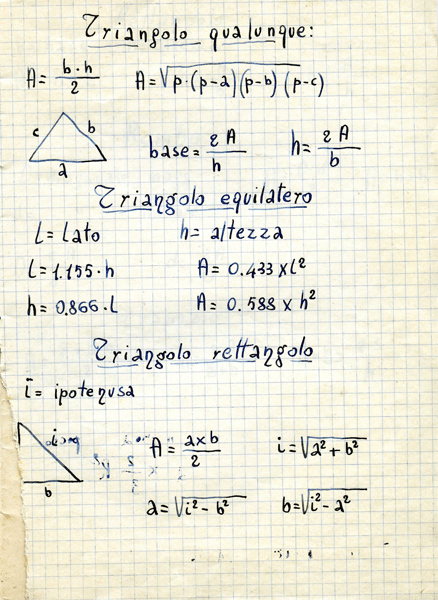 Triangolo qualunque:
A = b·h/2   A = √p·(p-a)(p-b)(p-c)
c b
a
base = 2A/h   h = 2A/b
Triangolo equilatero
l = lato   h = altezza
l = 1.155·h   A = 0.433 x l²
h = 0.866·l   A = 0.588 x h²
Triangolo rettangolo
i = ipotenusa
A = axb/2   i = √a² + b²
b
a = √i² - b²   b = √i² - a²